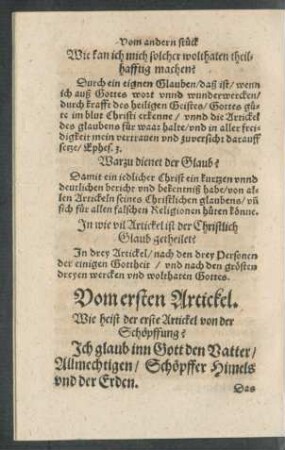 Vom andern stück
Wie kan ich mich solcher wolthaten theil-
hafftig machen?
Durch ein eignen Glauben/daß ist/wenn
ich auß Gottes wort vnnd wunderwercken/
durch krafft des heiligen Geistes/Gottes gü-
te im blut Christi erkenne/vnnd die Artickel
des glaubens für waar halte/vnd in aller frei-
digkeit mein vertrauen vnd zuversicht darauff
setze/Ephes. 3.
Warzu dienet der Glaub?
Damit ein iedlicher Christ ein kurtzen vnnd
deutlichen bericht vnd bekentniß habe/von al-
len Artickeln seines Christlichen glaubens/vñ
sich für allen falschen Religionen hüten könne.
In wie vil Artickel ist der Christlich
Glaub getheilet?
In drey Artickel/nach den drey Personen
der einigen Gottheit/vnd nach den grösten
dreyen wercken vnd wolthaten Gottes.
Vom ersten Artickel.
Wie heist der erste Artickel von der
Schöpffung?
Ich glaub inn Gott den Vatter/
Allmechtigen/Schöpffer Himels
vnd der Erden.
Das